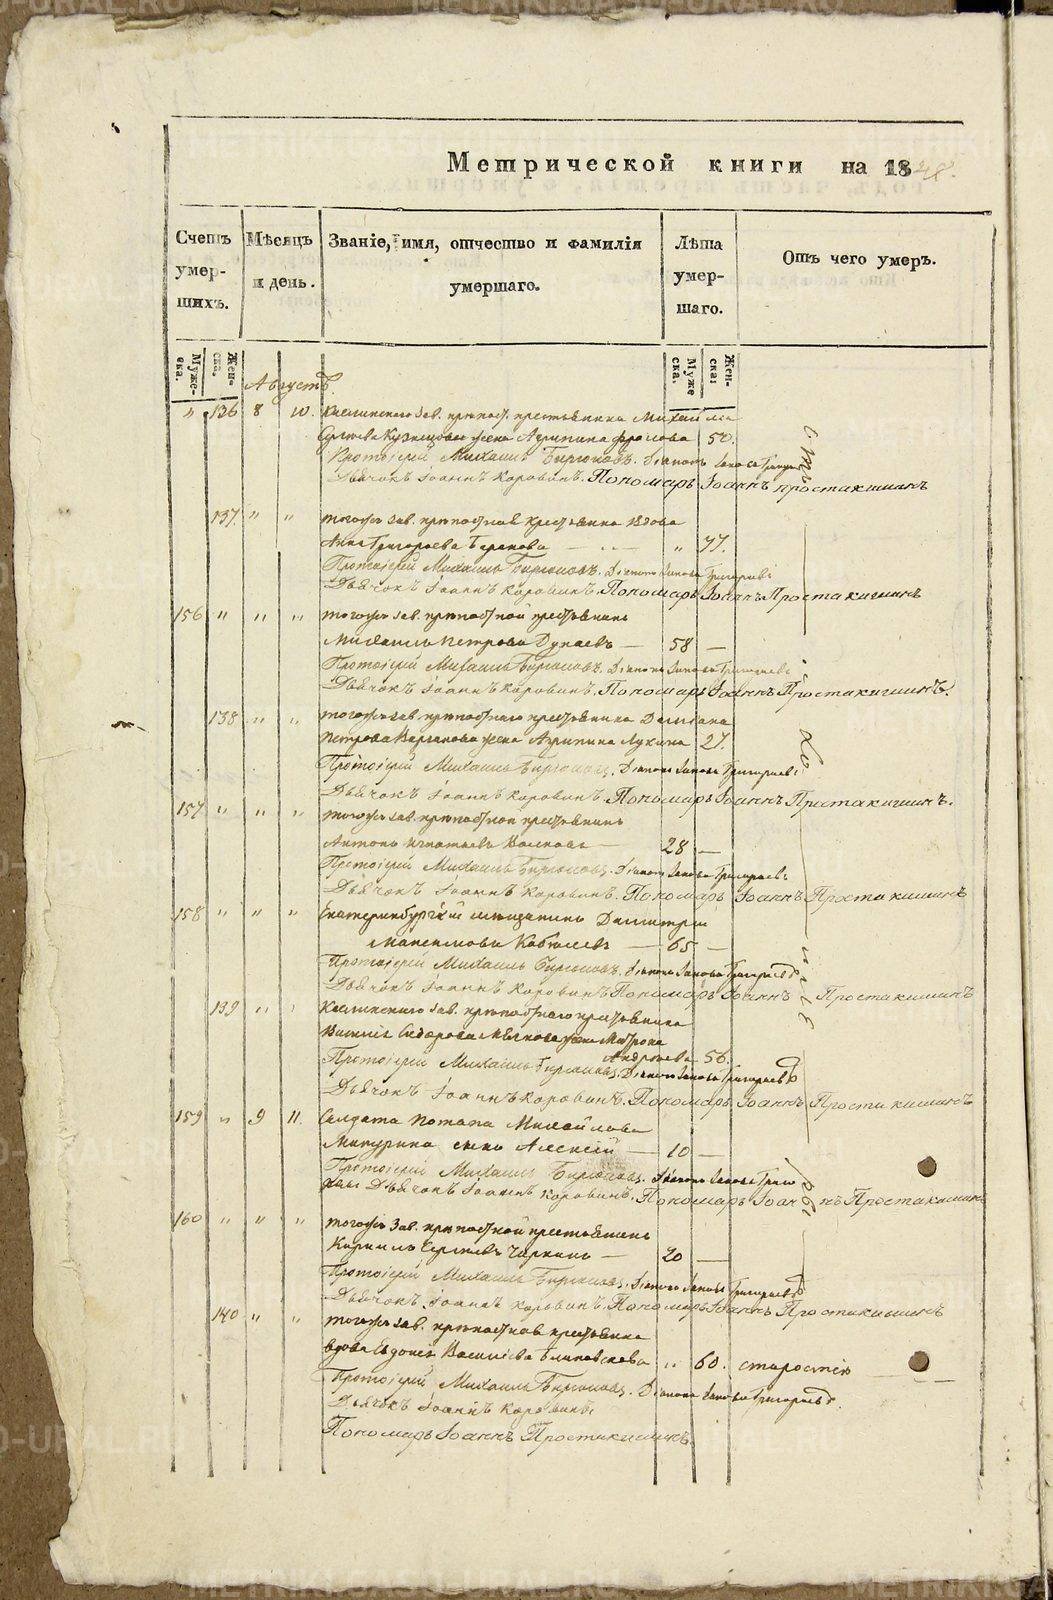 Метрической книги на 1848.
Счетъ умер-шихъ.
Мѣсяцъ и день.
Званіе, имя, отчество и фамилія умершаго.
Лѣта умер-шаго.
Отъ чего умеръ.
Муже-ска.
Жен-ска.
Муже ска.
Жен-ска:
Августъ
" 136 8 10. Каслинскаго зав. крѣпост. крестьянина Михаила
Сергѣева Кузнецова жена Агрипина Фролова 50.
Протоіерей Михаилъ Бирюковъ. Діаконъ Григор
Дьячокъ Іоаннъ Коровинъ. Пономарь Іоаннъ Простакишинъ
137. " " тогожъ зав. крѣпостнаго крестьянина вдова
Анна Григорьева Баранова — " — " 77.
Протоіерей Михаилъ Бирюковъ. Діаконъ Григорьевъ
Дьячокъ Іоаннъ Коровинъ. Пономарь Іоаннъ Простакишинъ
156 " " " тогожъ зав. крѣпостной крестьянинъ
Михаилъ Петровъ Дунаевъ — 58 —
Протоіерей Михаилъ Бирюковъ. Діаконъ Григорьевъ
Дьячокъ Іоаннъ Коровинъ. Пономарь Іоаннъ Простакишинъ.
138 " " тогожъ зав. крѣпостнаго крестьянина
Петрова жена Агрипина Лукина 27.
Протоіерей Михаилъ Бирюковъ. Діаконъ Григорьевъ
Дьячокъ Іоаннъ Коровинъ. Пономарь Іоаннъ Простакишинъ.
157 " " " тогожъ зав. крѣпостной крестьянинъ
Антонъ Игнатьевъ — 28 —
Протоіерей Михаилъ Бирюковъ. Діаконъ Григорьевъ
Дьячокъ Іоаннъ Коровинъ. Пономарь Іоаннъ Простакишинъ
158 " " " Екатеринбургскій мѣщанинъ Димитрій
Максимовъ — 65 —
Протоіерей Михаилъ Бирюковъ. Діаконъ Григорьевъ
Дьячокъ Іоаннъ Коровинъ Пономарь Іоаннъ Простакишинъ
139 " " Каслинскаго зав. крѣпостнаго крестьянина
Василія Сидорова жена Матрона
Андреева 56.
Протоіерей Михаилъ Бирюковъ. Діаконъ Григорьевъ
Дьячокъ Іоаннъ Коровинъ. Пономарь Іоаннъ Простакишинъ
159 " 9 11. Солдата Потапа Михайлова
сынъ Алексѣй — 10 —
Протоіерей Михаилъ Бирюковъ. Діаконъ Григо
Дьячокъ Іоаннъ Коровинъ. Пономарь Іоаннъ Простакишинъ
160 " " " тогожъ зав. крѣпостной крестьянинъ
Кирилъ Сергѣевъ — 20 —
Протоіерей Михаилъ Бирюковъ. Діаконъ Григорьевъ
Дьячокъ Іоаннъ Коровинъ. Пономарь Іоаннъ Простакишинъ
140 " " тогожъ зав. крѣпостнаго крестьянина
вдова Евдокія Василіева " 60. старостію
Протоіерей Михаилъ Бирюковъ. Діаконъ Григорьевъ.
Дьячокъ Іоаннъ Коровинъ.
Пономарь Іоаннъ Простакишинъ.